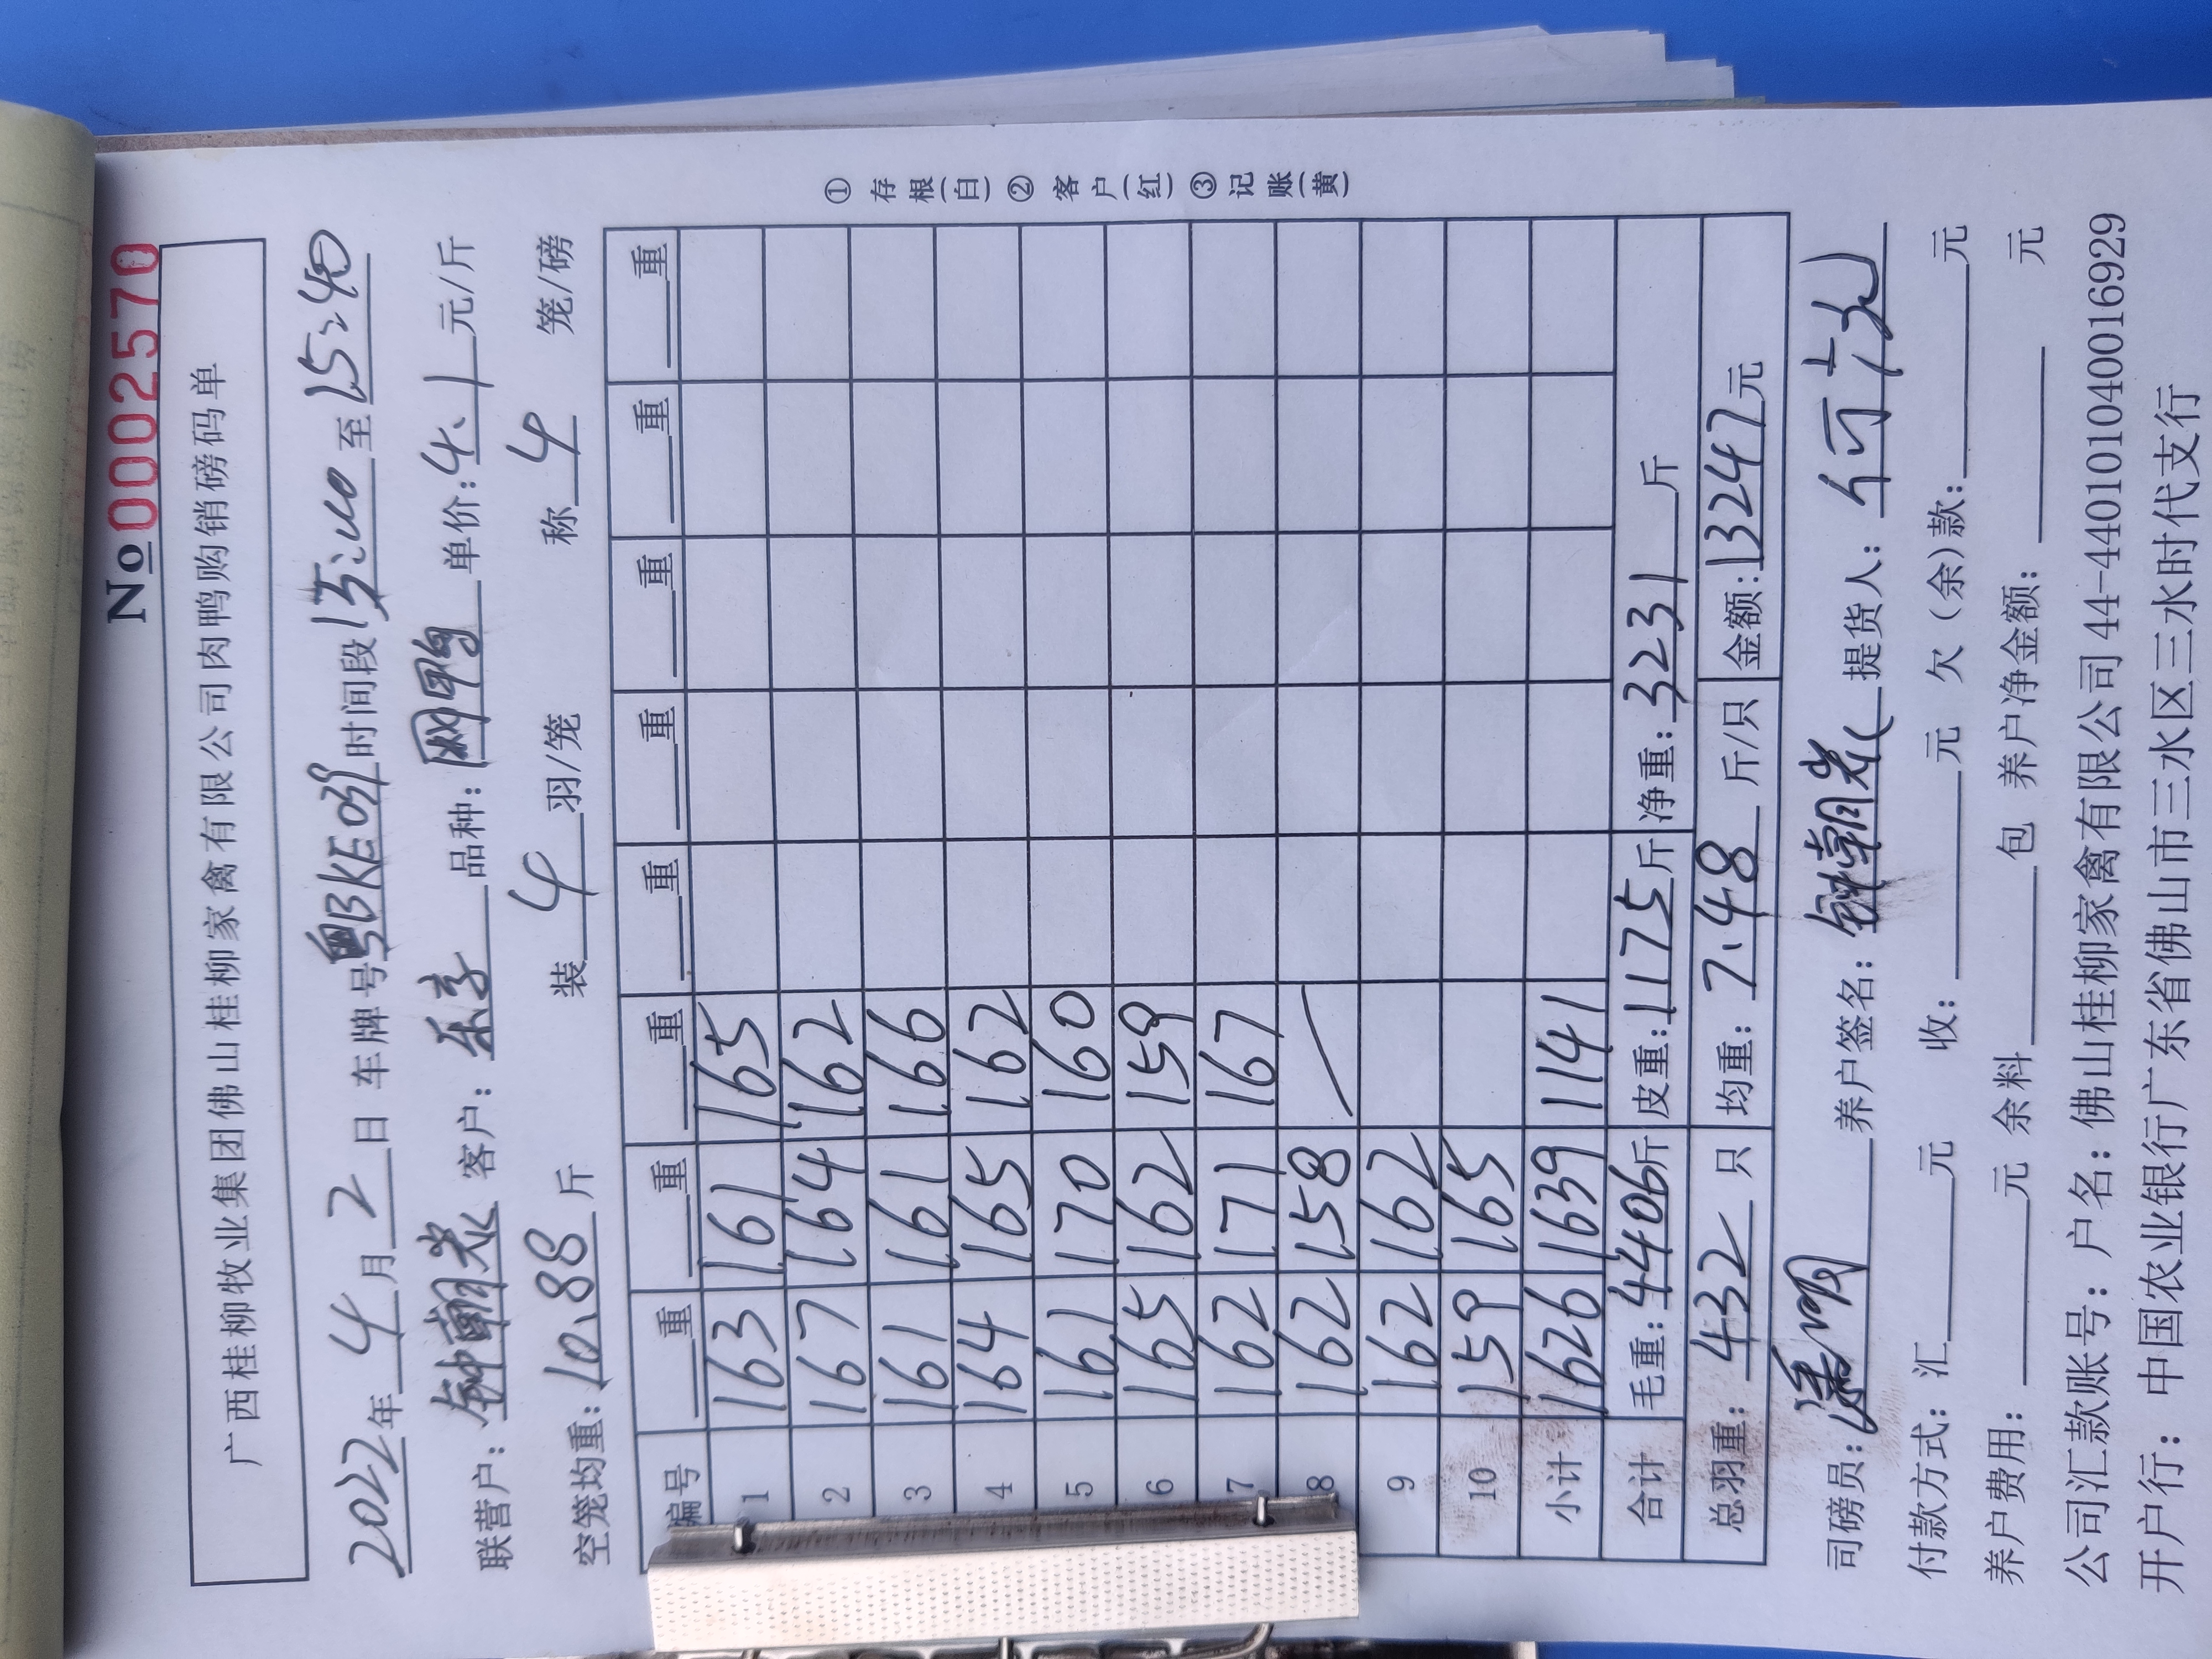 No 0002570
广西桂柳牧业集团佛山桂柳家禽有限公司肉鸭购销磅码单
2022年4月2日 车牌号粤BKE 时间段 至15:40
联营户: 钟朝光 客户: 乐亨 品种: 网鸭 单价:4.1元/斤
空笼均重: 10.88斤 装4羽/笼 称4笼/磅
编号 重 重 重 重 重 重 重 重
1 163 161 165
2 167 164 162
3 161 161 166
4 164 165 162
5 161 170 160
6 165 162 159
7 162 171 167
8 162 158 /
9 162 162
10 159 165
小计 1626 1639 1141
合计 毛重:4406斤 皮重:1175斤 净重:3231斤
总羽重: 432只 均重: 7.48斤/只 金额:13247元
① 存根(白) ② 客户(红) ③ 记账(黄)
司磅员: 养户签名: 钟朝光 提货人:
付款方式: 汇 元 收: 元 欠(余)款: 元
养户费用: 元 余料 包 养户净金额: 元
公司汇款账号: 户名: 佛山桂柳家禽有限公司 44-440101040016929
开户行: 中国农业银行广东省佛山市三水区三水时代支行